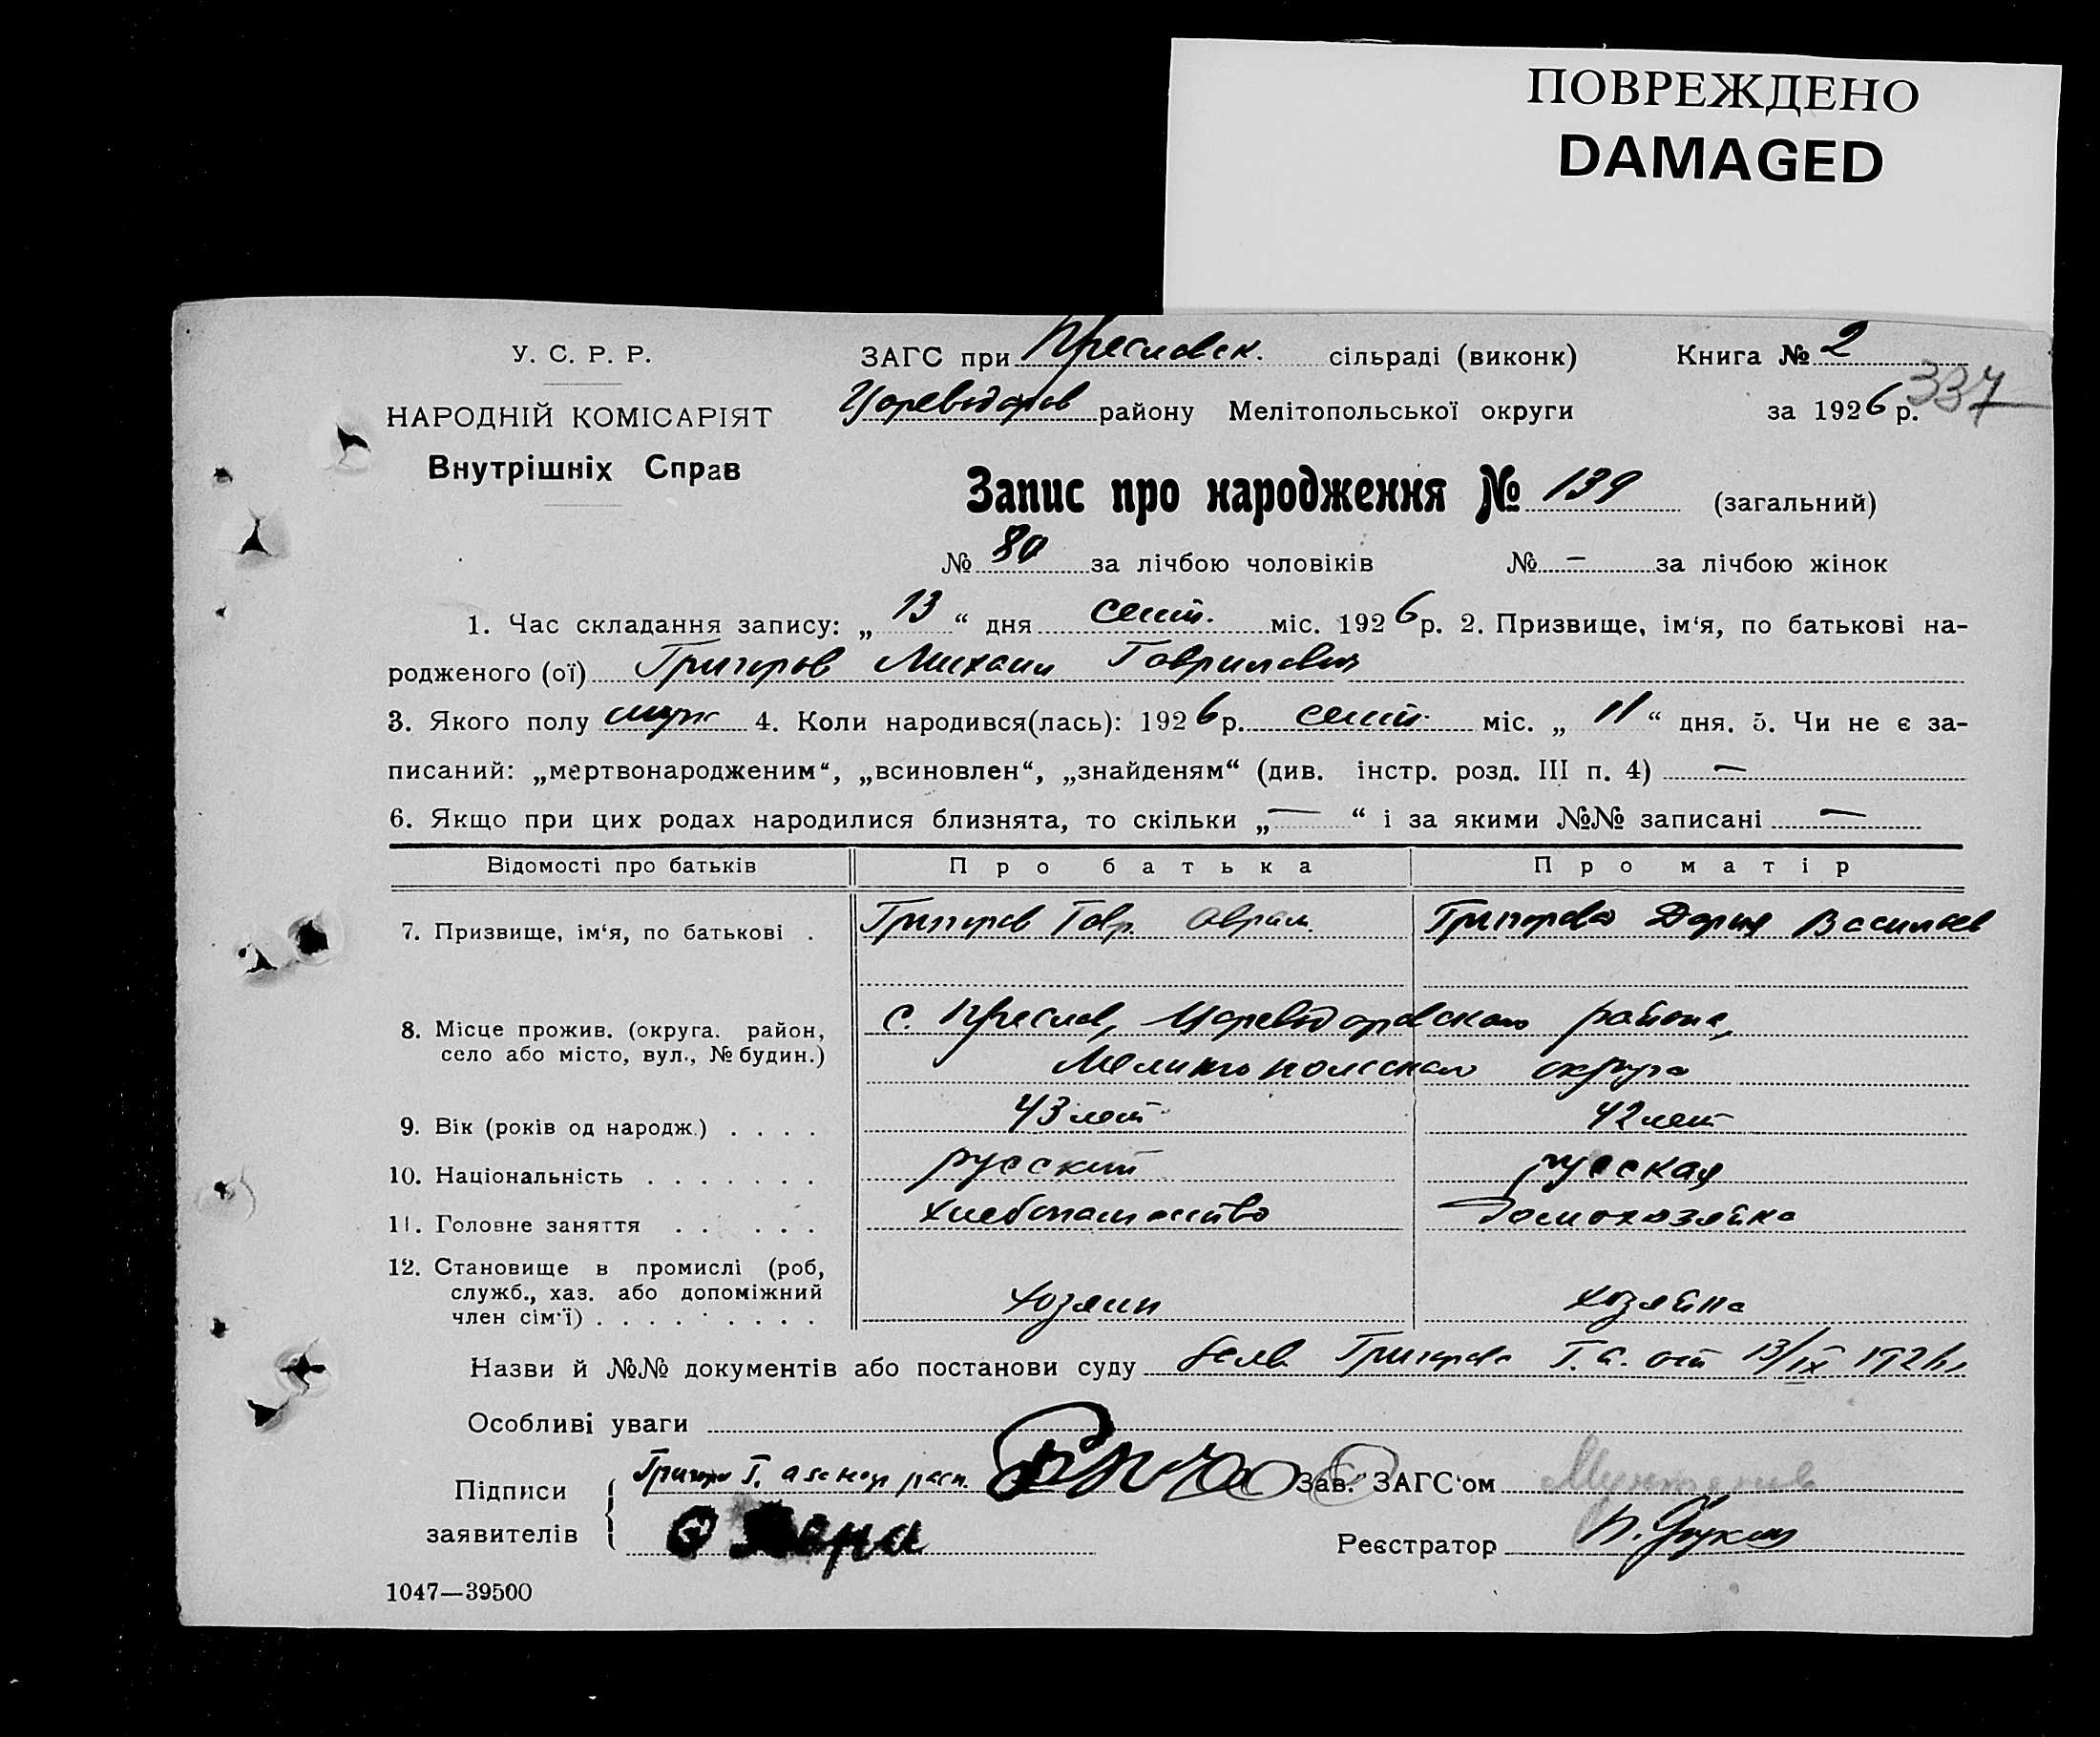 ПОВРЕЖДЕНО
DAMAGED
У. С. Р. Р.
НАРОДНІЙ КОМІСАРІЯТ
Внутрішніх Справ
ЗАГС при Преславск. сільраді (виконк)
Книга № 2
Цареводаров району Мелітопольської округи
за 1926 р.
337
Запис про народження № 139 (загальний)
№ 80 за лічбою чоловіків № — за лічбою жінок
1. Час складання запису: „ 13 “ дня сент. міс. 1926 р. 2. Призвище, ім‘я, по батькові на-
родженого (ої) Григоров Михаил Гаврилович
3. Якого полу муж 4. Коли народився(лась): 1926 р. сент. міс. „ 11 “ дня. 5. Чи не є за-
писаний: „мертвонародженим“, „всиновлен“, „знайденям“ (див. інстр. розд. III п. 4) —
6. Якщо при цих родах народилися близнята, то скільки „ — “ і за якими №№ записані —
Відомості про батьків Про батька Про матір
7. Призвище, ім‘я, по батькові . Григоров Гавр. Аврам. Григорова Дария Васильев
8. Місце прожив. (округа. район, село або місто, вул., № будин.) с. Преслав, Цареводаровского района,
Мелитопольского округа
9. Вік (років од народж.) . . . . 43 лет 42 лет
10. Національність . . . . . . . русский русская
11. Головне заняття . . . . . . хлебопашество домохозяйка
12. Становище в промислі (роб, служб., хаз. або допоміжний член сім‘ї) . . . . . . . . . хозяин хозяйка
Назви й №№ документів або постанови суду Григорова Г. А. от 13/IX 1926 г.
Особливі уваги
Підписи заявителів Григоро Г. а за негр расп.
Зав. ЗАГС‘ом
Реєстратор
1047—39500